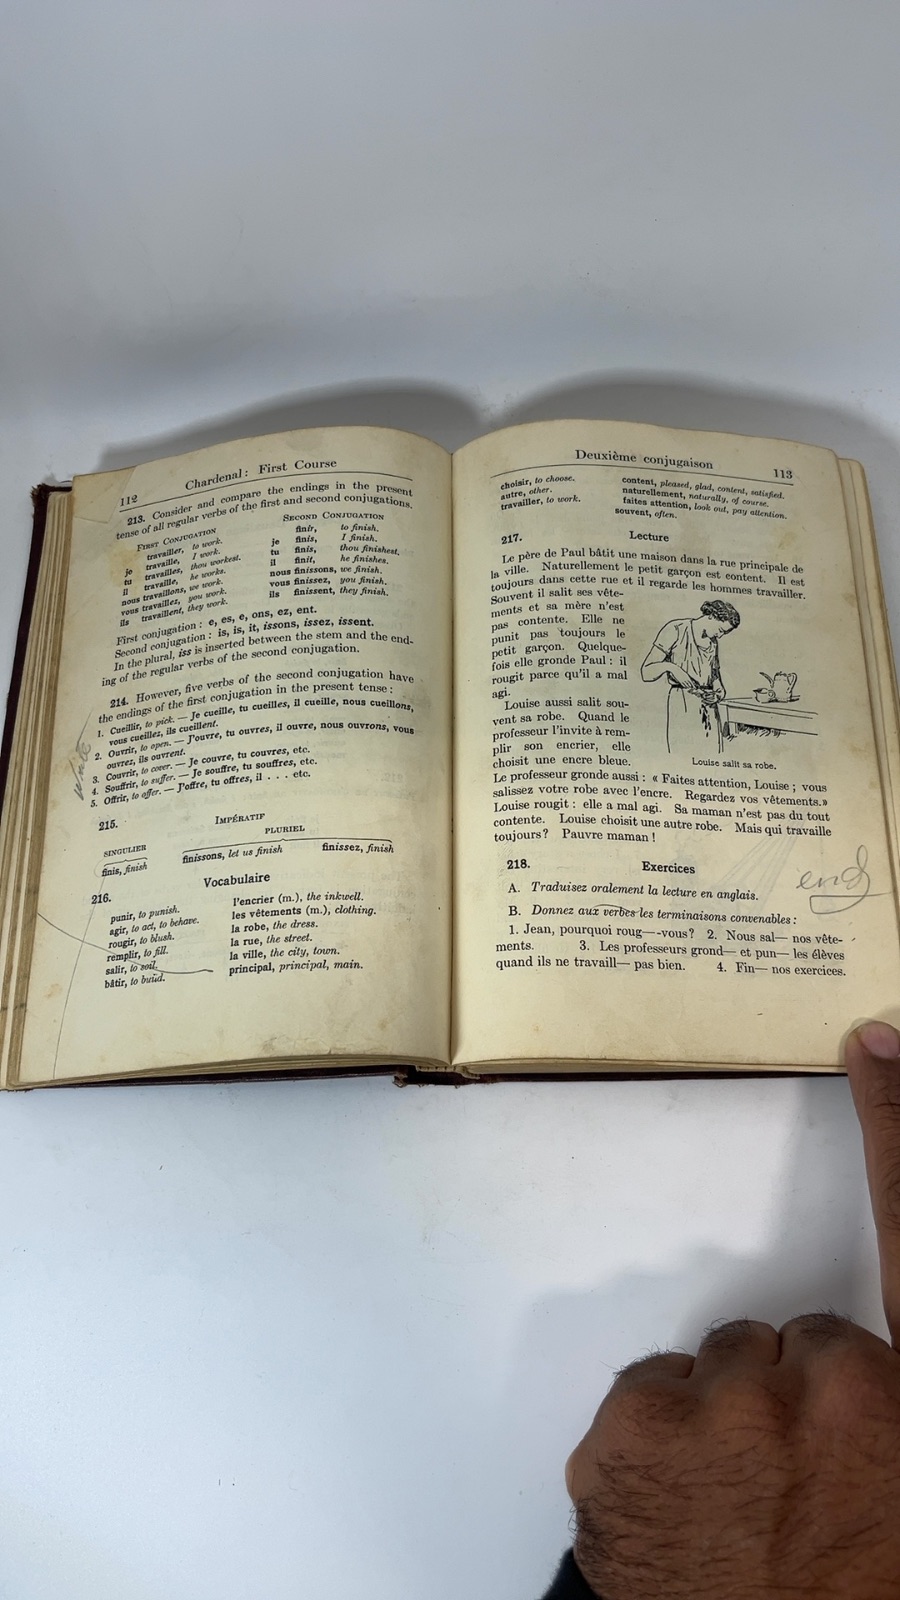 112
Chardenal: First Course
213. Consider and compare the endings in the present
tense of all regular verbs of the first and second conjugations.
First Conjugation
travailler, to work.
je travaille, I work.
tu travailles, thou workest.
il travaille, he works.
nous travaillons, we work.
vous travaillez, you work.
ils travaillent, they work.
Second Conjugation
finir, to finish.
je finis, I finish.
tu finis, thou finishest.
il finit, he finishes.
nous finissons, we finish.
vous finissez, you finish.
ils finissent, they finish.
First conjugation : e, es, e, ons, ez, ent.
Second conjugation : is, is, it, issons, issez, issent.
In the plural, iss is inserted between the stem and the end-
ing of the regular verbs of the second conjugation.
214. However, five verbs of the second conjugation have
the endings of the first conjugation in the present tense :
1. Cueillir, to pick. — Je cueille, tu cueilles, il cueille, nous cueillons,
vous cueillez, ils cueillent.
2. Ouvrir, to open. — J'ouvre, tu ouvres, il ouvre, nous ouvrons, vous
ouvrez, ils ouvrent.
3. Couvrir, to cover. — Je couvre, tu couvres, etc.
4. Souffrir, to suffer. — Je souffre, tu souffres, etc.
5. Offrir, to offer. — J'offre, tu offres, il . . . etc.
write
215.
Impératif
SINGULIER
PLURIEL
finis, finish
finissons, let us finish
finissez, finish
216.
Vocabulaire
punir, to punish.
agir, to act, to behave.
rougir, to blush.
remplir, to fill.
salir, to soil.
bâtir, to build.
l'encrier (m.), the inkwell.
les vêtements (m.), clothing.
la robe, the dress.
la rue, the street.
la ville, the city, town.
principal, principal, main.
Deuxième conjugaison
113
choisir, to choose.
autre, other.
travailler, to work.
content, pleased, glad, content, satisfied.
naturellement, naturally, of course.
faites attention, look out, pay attention.
souvent, often.
217.
Lecture
Le père de Paul bâtit une maison dans la rue principale de
la ville. Naturellement le petit garçon est content. Il est
toujours dans cette rue et il regarde les hommes travailler.
Souvent il salit ses vête-
ments et sa mère n'est
pas contente. Elle ne
punit pas toujours le
petit garçon. Quelque-
fois elle gronde Paul : il
rougit parce qu'il a mal
agi.
Louise aussi salit sou-
vent sa robe. Quand le
professeur l'invite à rem-
plir son encrier, elle
choisit une encre bleue.
Louise salit sa robe.
Le professeur gronde aussi : « Faites attention, Louise ; vous
salissez votre robe avec l'encre. Regardez vos vêtements.»
Louise rougit : elle a mal agi. Sa maman n'est pas du tout
contente. Louise choisit une autre robe. Mais qui travaille
toujours? Pauvre maman !
218.
Exercices
end
A. Traduisez oralement la lecture en anglais.
B. Donnez aux verbes les terminaisons convenables :
1. Jean, pourquoi roug—-vous? 2. Nous sal— nos vête-
ments. 3. Les professeurs grond— et pun— les élèves
quand ils ne travaill— pas bien. 4. Fin— nos exercices.